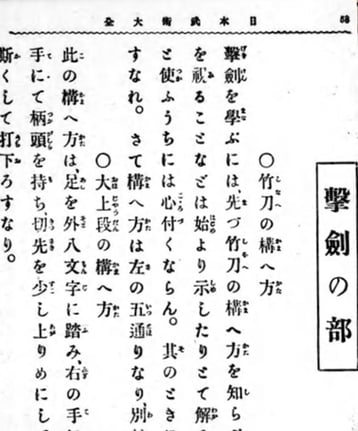 日本武術大全
58
擊劍の部
〇竹刀の構へ方
擊劍を學ぶには、先づ竹刀の構へ方を知ら
を視ることなどは始より示したりとて解
と使ふうちには心付くならん。其のとき
すなれ。さて構へ方は左の五通りなり、別
〇大上段の構へ方
此の構へ方は、足を外八文字に踏み、右の手
手にて柄頭を持ち、切先を少し上りめにし
斯くして打下ろすなり。